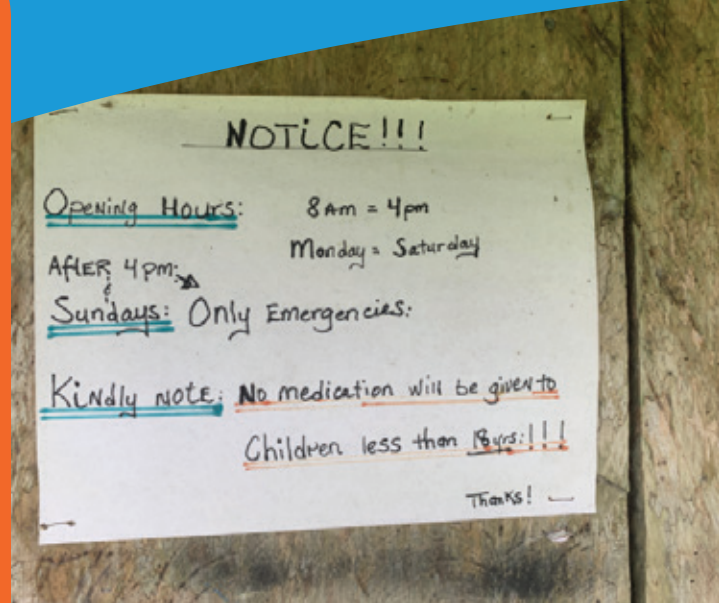 NOTiCE!!!
Opening Hours: 8 Am = 4pm
Monday = Saturday
AfTER 4pm:
&
Sundays: Only Emergencies:
Kindly note: No medication will be given to
Children less than 18yrs:!!!
Thanks!